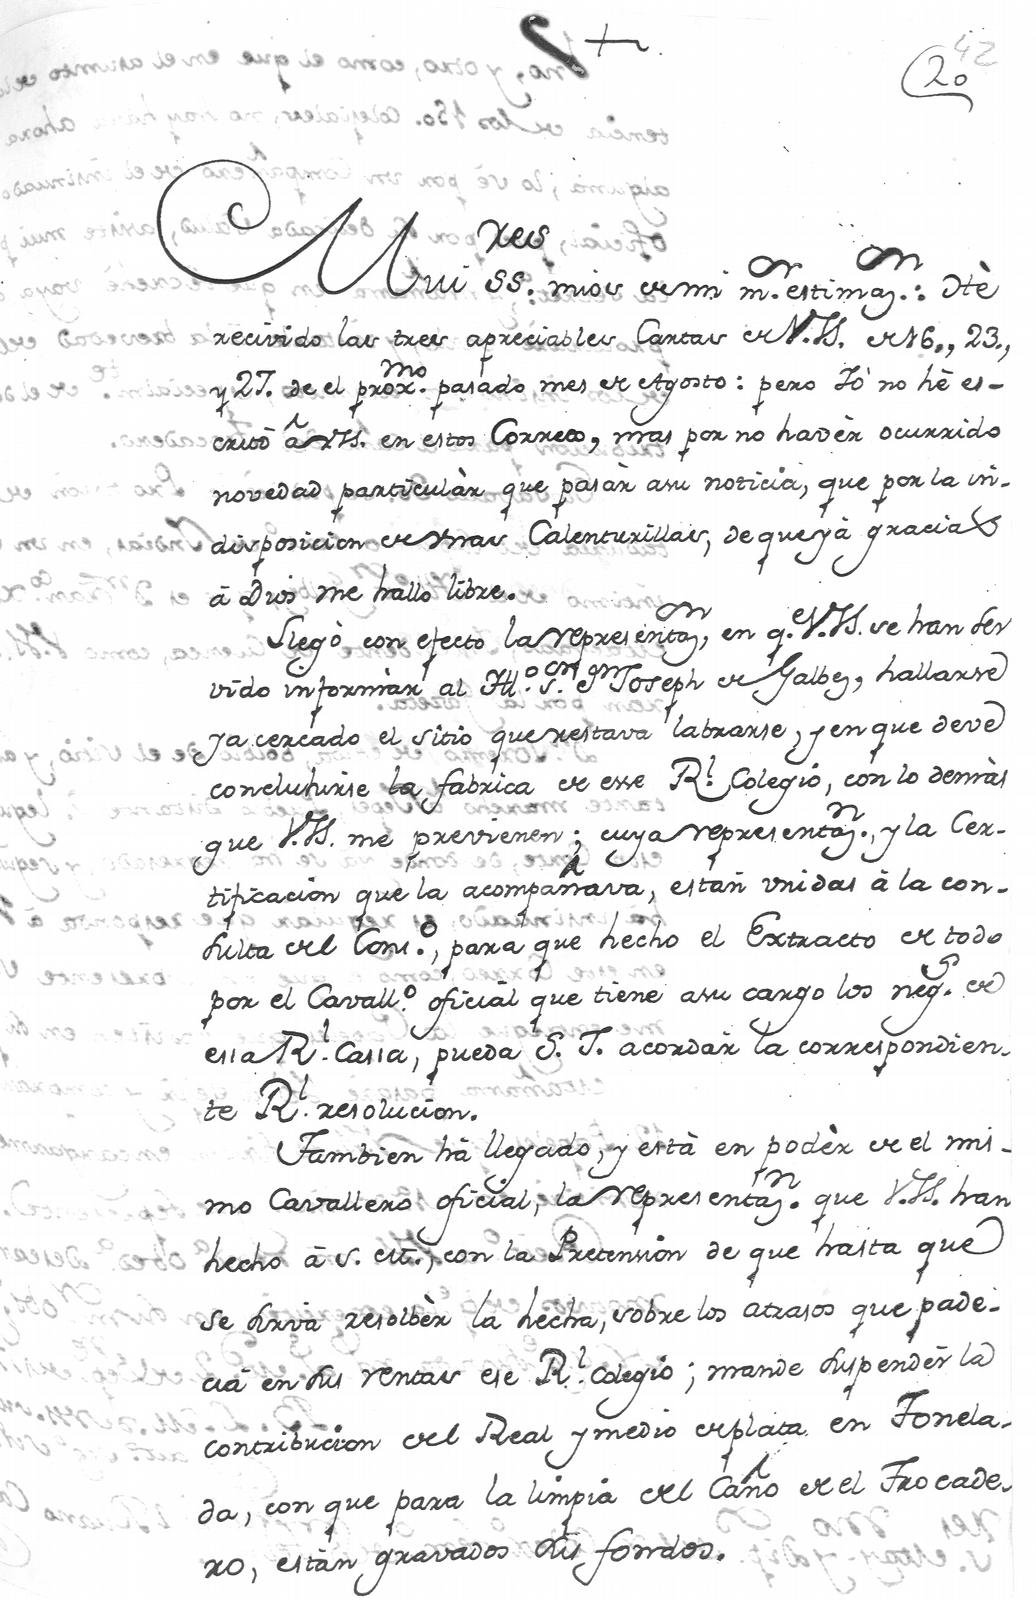 +
42
20
Mui SS.res mios de mi m.r estimaz.on: Hè
recivido las tres apreciables Cartas de V.SS. de 16., 23.,
y 27. de el prox.mo pasado mes de Agosto: pero Yò no hè es-
critò â VSS. en estos Correos, mas por no havèr ocurrido
novedad particulàr que pasàr asu noticia, que por la in-
disposicion de Unas Calenturillas, de que yà gracias
â Dios me hallo libre.
Llegò con efecto la representaz.on, en q.e V.SS. se han ser
vido informàr al Ill.o S.or D.n Joseph de Galbez, hallarse
ya cercado el sitio que restava labrarse, y en que deve
concluhirse la fabrica de esse R.l Colegio, con lo demàs
que V.SS. me previenen; cuya representaz.n, y la Cer-
tificacion que la acompañava, estàn unidas â la con-
sulta del Cons.o, para que hecho el Extracto de todo
por el Cavall.o oficiàl que tiene asu cargo los neg.s de
essa R.l Cassa, pueda S. I. acordàr la correspondien-
te R.l resolucion.
Tambien hà llegado, y està en podèr de el mis-
mo Cavallero oficial, la representaz.n que V.SS. han
hecho à S. M., con la Pretension de que hasta que
se sirva resolbèr la hecha, sobre los atrasos que pade-
cià en sus rentas ese R.l Colegio; mande suspendèr la
contribucion del Real y medio de plata en Tonela-
da, con que para la limpia del Caño de el Trocade-
ro, estàn gravados sus fondos.